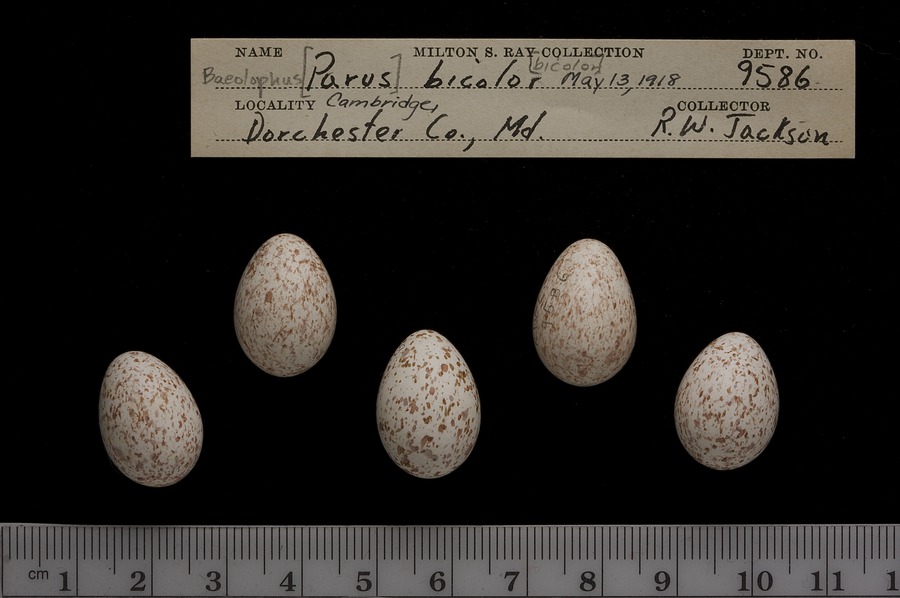 NAME MILTON S. RAY COLLECTION DEPT. NO.
Baeolophus [Parus] bicolor [bicolor] May 13, 1918 9586
LOCALITY Cambridge, COLLECTOR
Dorchester Co., Md. R.W. Jackson
9586
cm 1 2 3 4 5 6 7 8 9 10 11 1